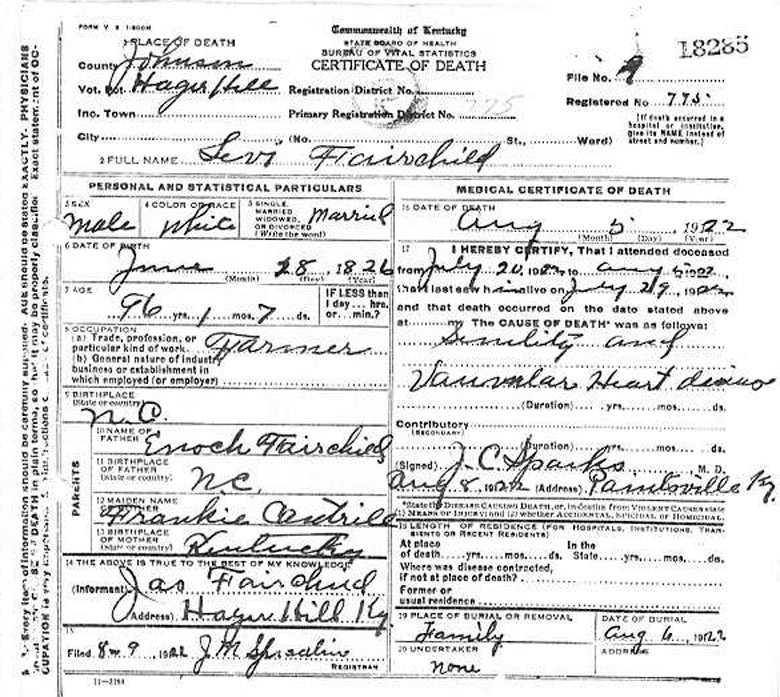 FORM V S 1-500M
Commonwealth of Kentucky
STATE BOARD OF HEALTH
BUREAU OF VITAL STATISTICS
CERTIFICATE OF DEATH
18285
1 PLACE OF DEATH
County Johnson
Vot. Pct Hager Hill Registration District No.
File No. 9
Inc. Town Primary Registration District No. 775
Registered No 775
[If death occurred in a hospital or institution, give its NAME instead of street and number.]
City (No. St., Ward)
2 FULL NAME Levi Fairchild
PERSONAL AND STATISTICAL PARTICULARS
3 SEX Male
4 COLOR OR RACE White
5 SINGLE, MARRIED WIDOWED, OR DIVORCED (Write the word) Married
6 DATE OF BIRTH
June 28, 1826
(Month) (Day) (Year)
7 AGE
96 yrs. 1 mos. 7 ds.
IF LESS than 1 day... hrs. or... min.?
8 OCCUPATION
(a) Trade, profession, or particular kind of work. Farmer
(b) General nature of industry business or establishment in which employed (or employer)
9 BIRTHPLACE (State or country) N.C.
PARENTS
10 NAME OF FATHER Enoch Fairchild
11 BIRTHPLACE OF FATHER (State or country) N.C.
12 MAIDEN NAME OF MOTHER Frankie
13 BIRTHPLACE OF MOTHER (State or country) Kentucky
14 THE ABOVE IS TRUE TO THE BEST OF MY KNOWLEDGE
(Informant) Jas Fairchild
(Address) Hager Hill Ky
15
Filed 8-9, 1922 J M Spradlin
REGISTRAR
11-3184
MEDICAL CERTIFICATE OF DEATH
16 DATE OF DEATH
Aug 5, 1922
(Month) (Day) (Year)
17 I HEREBY CERTIFY, That I attended deceased
from July 20, 1922 to Aug 5 1922,
that I last saw him alive on July 29, 1922
and that death occurred on the date stated above
at m. The CAUSE OF DEATH* was as follows:
Senility and
Vauvular Heart
(Duration) yrs. mos. ds.
Contributory
(SECONDARY)
(Duration) yrs. mos. ds.
(Signed) J. C. Sparks M. D.
Aug 8, 1922 (Address) Paintsville Ky
*State the DISEASE CAUSING DEATH, or, in deaths from VIOLENT CAUSES state (1) MEANS OF INJURY; and (2) whether ACCIDENTAL, SUICIDAL, or HOMICIDAL.
18 LENGTH OF RESIDENCE (FOR HOSPITALS, INSTITUTIONS, TRANSIENTS OR RECENT RESIDENTS)
At place of death yrs. mos. ds. In the State yrs. mos. ds.
Where was disease contracted, if not at place of death?
Former or usual residence
19 PLACE OF BURIAL OR REMOVAL
Family
DATE OF BURIAL
Aug 6, 1922
20 UNDERTAKER
None
ADDRESS